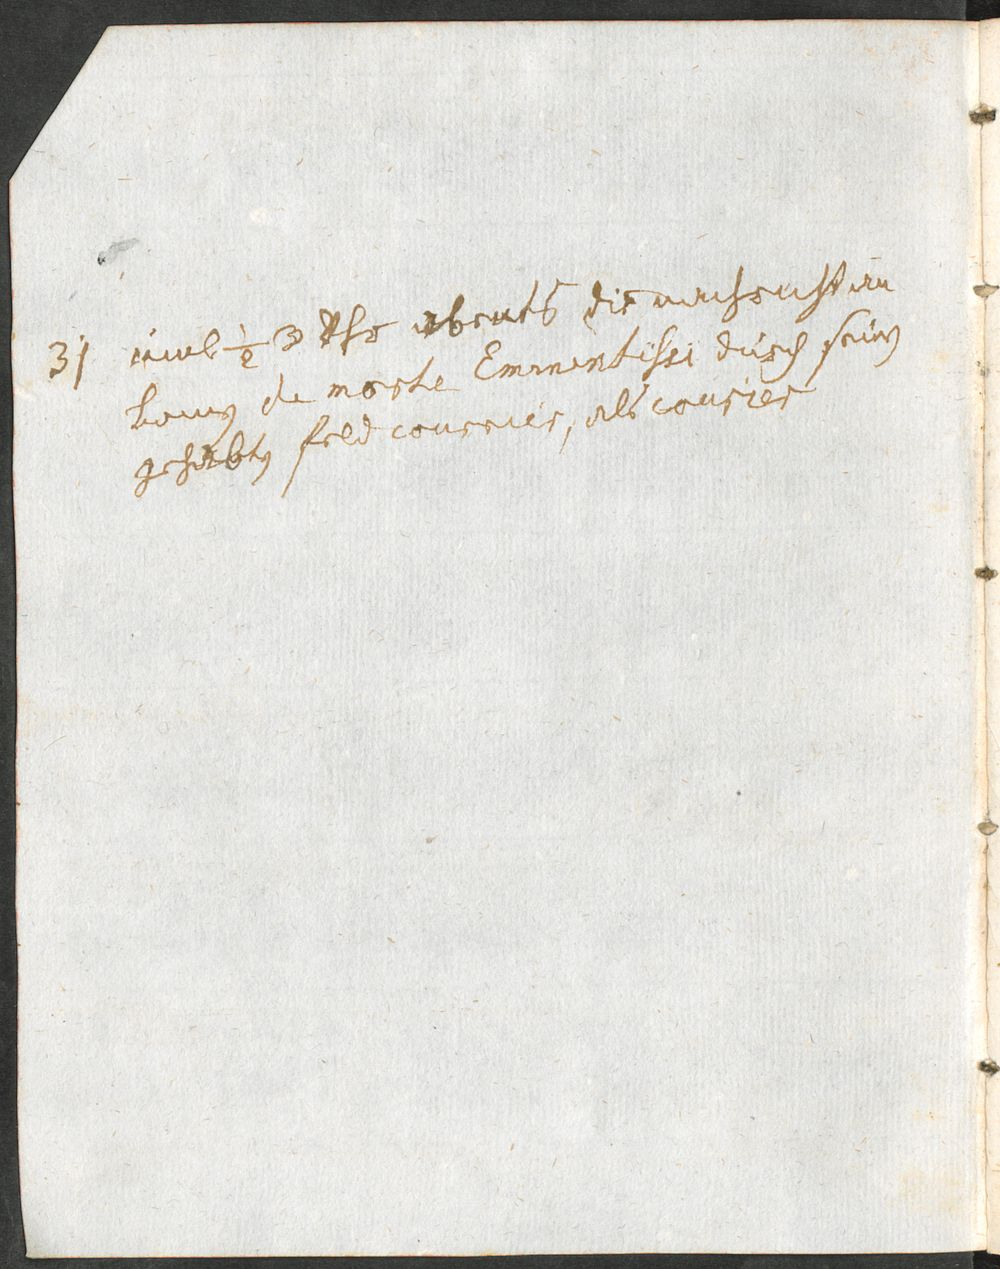 31 umb ½ 3 Uhr abents die nachricht an
komen de morte Eminentissi durch sein
gehabten feld courrier, als courier